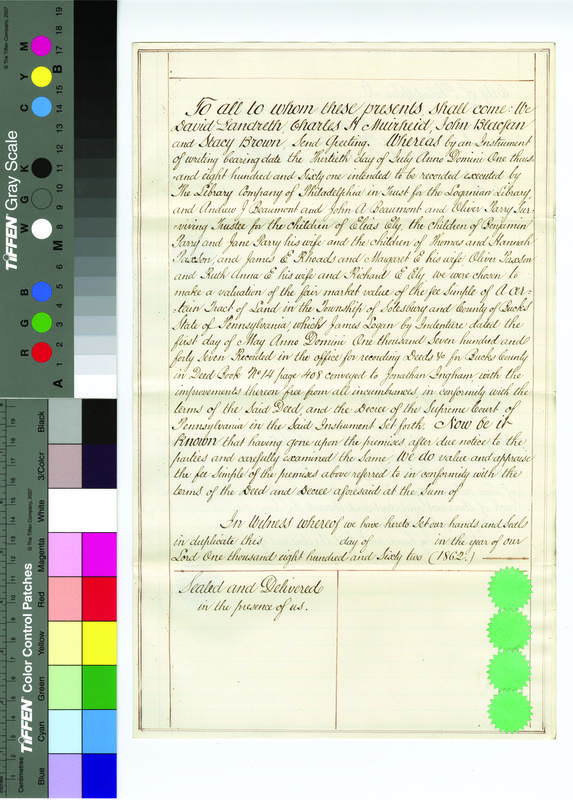 To all to whom these presents shall come: We
David Landreth, Charles H Muirheid, John Blackfan
and Stacy Brown, Send Greeting. Whereas by an Instrument
of writing bearing date the Thirtieth day of July Anno Domini One thous
-and eight hundred and Sixty one intended to be recorded executed by
The Library Company of Philadelphia in Trust for the Loganian Library
and Andrew J Beaumont and John A Beaumont and Oliver Parry Sur-
viving Trustee for the children of Elias Ely, the children of Benjamin
Parry and Jane Parry his wife and the children of Thomas and Hannah
Paxson, and James E Rhoads and Margaret E his wife Oliver Paxson
and Ruth Anna E his wife and Richard E Ely, we were chosen to
make a valuation of the fair market value of the fee Simple of A cer-
tain Tract of Land in the Township of Solesbury and County of Bucks
State of Pennsylvania, which James Logan by Indenture dated the
first day of May Anno Domini One thousand Seven hundred and
forty Seven Recorded in the office for recording Deeds &c for Bucks County
in Deed Book No 14 page 408 conveyed to Jonathan Ingham, with the
improvements thereon free from all incumbrances, in conformity with the
terms of the Said Deed, and the Decree of the Supreme Court of
Pennsylvania in the Said Instrument Set forth. Now be it
Known that having gone upon the premises after due notice to the
parties and carefully examined the same We do value and appraise
the fee Simple of the premises above referred to in conformity with the
terms of the Deed and Decree aforesaid at the Sum of
In Witness whereof we have hereto Set our hands and Seals
in duplicate this day of in the year of our
Lord One thousand eight hundred and Sixty two (1862.)
Sealed and Delivered
in the presence of us.
TIFFEN Gray Scale
© The Tiffen Company, 2007
R G B W G K C Y M
A 1 2 3 4 5 6 M 8 9 10 11 12 13 14 15 B 17 18 19
TIFFEN Color Control Patches
© The Tiffen Company, 2007
Centimetres
Blue Cyan Green Yellow Red Magenta White 3/Color Black